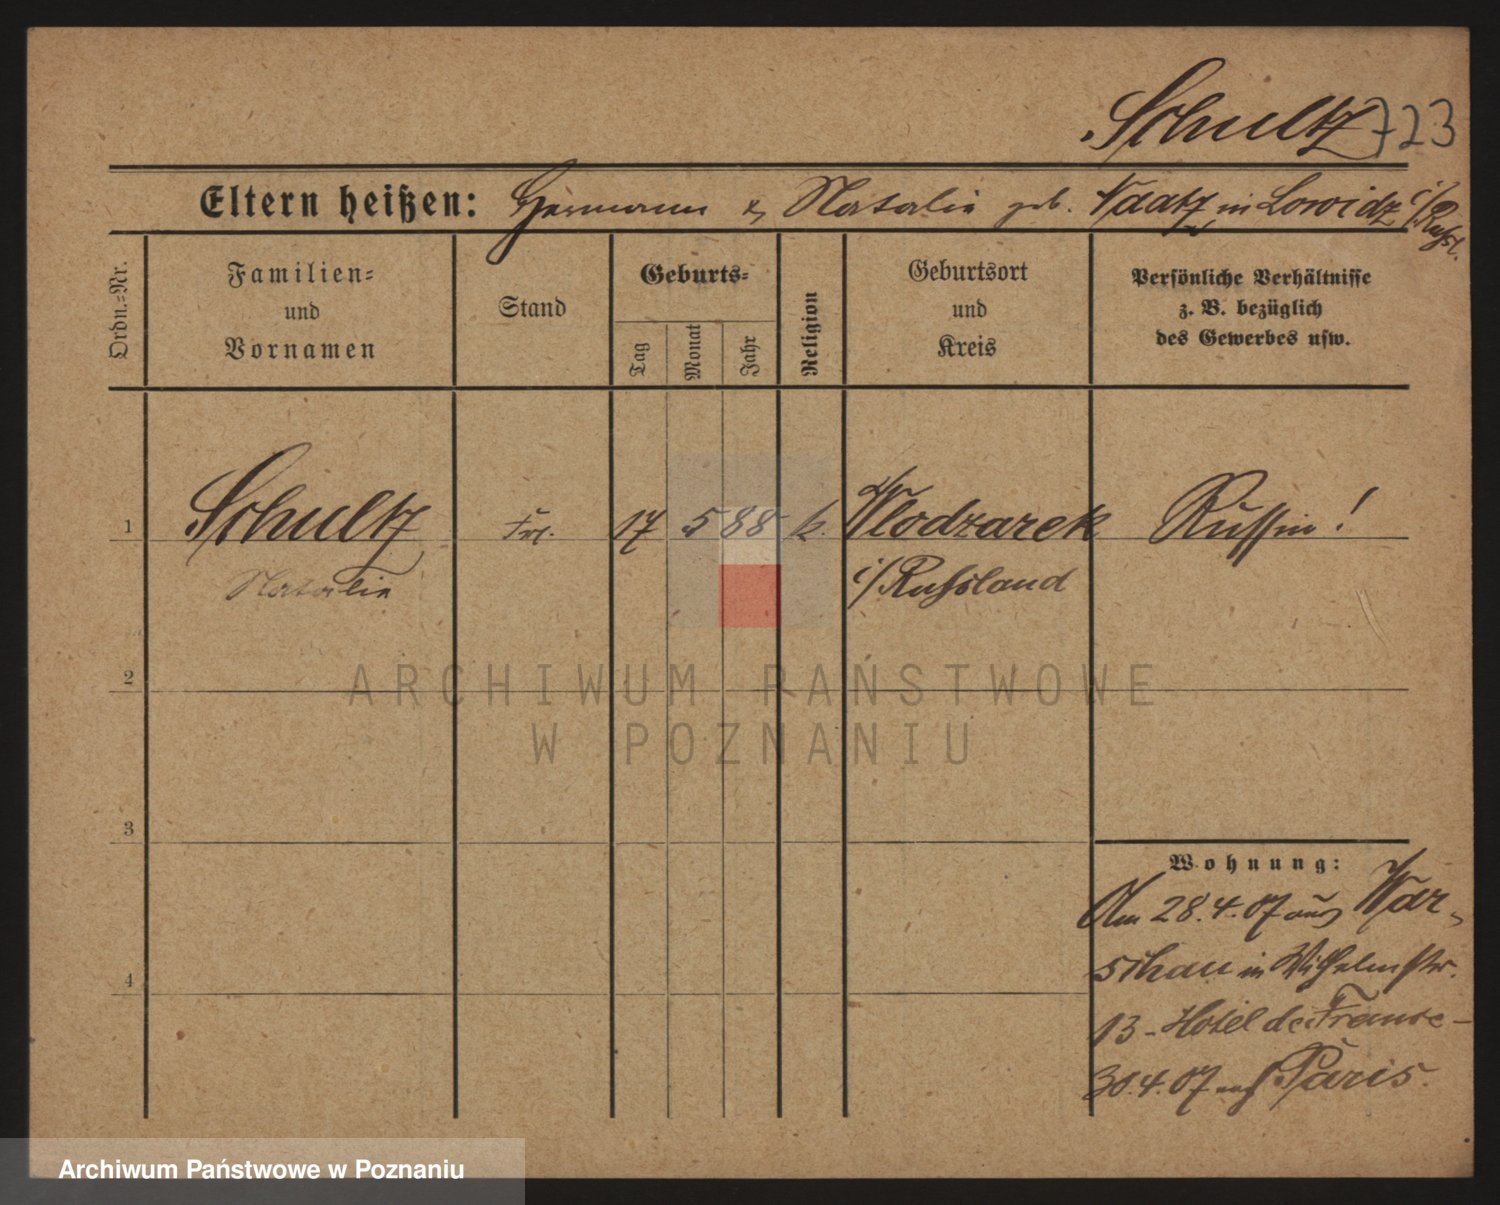 Schultz 723
Eltern heißen: Hermann & Natalie geb. Vaatz in Lowidz i/Russl.
Ordn.=Nr.
Familien=
und
Vornamen
Stand
Geburts=
Tag
Monat
Jahr
Religion
Geburtsort
und
Kreis
Persönliche Verhältnisse
z. B. bezüglich
des Gewerbes usw.
1 Schultz Frl. 17 5 88 k. Wlodzarek Russin!
Natalie i/Russland
2
ARCHIWUM PAŃSTWOWE
W POZNANIU
3
Wohnung:
Am 28.4.07 aus War-
schau in Wilhelmstr.
4
13 - Hotel de France -
30.4.07 auf Paris.
Archiwum Państwowe w Poznaniu